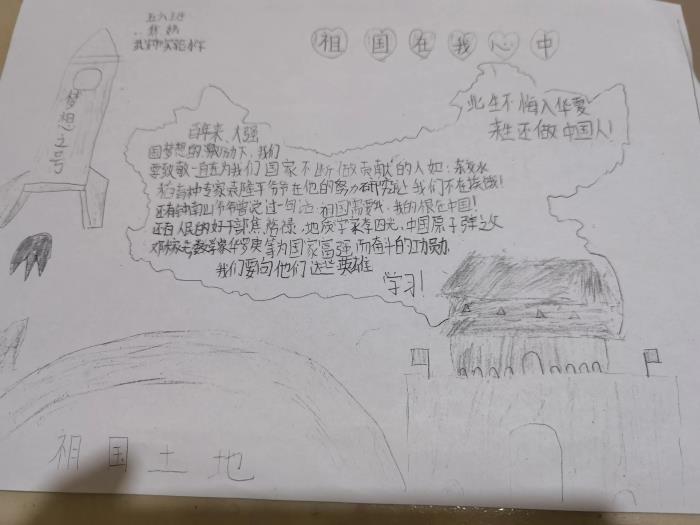 五六班
祖国在我心中
梦想之号
此生不悔入华夏
来生还做中国人!
百年来,大强
国梦想的激励下,我们
要致敬一直在为我们国家不断做贡献的人如:杂交水
稻育种专家袁隆平爷爷在他的努力研究让我们不在挨饿!
还有钟南山爷爷曾说过一句话:祖国需要我,我的根在中国!
还有人民的好干部焦裕禄,地质学家李四光,中国原子弹之父
邓稼先数学家华罗庚等为国家富强而奋斗的
我们要向他们这些英雄
学习!
祖国土地